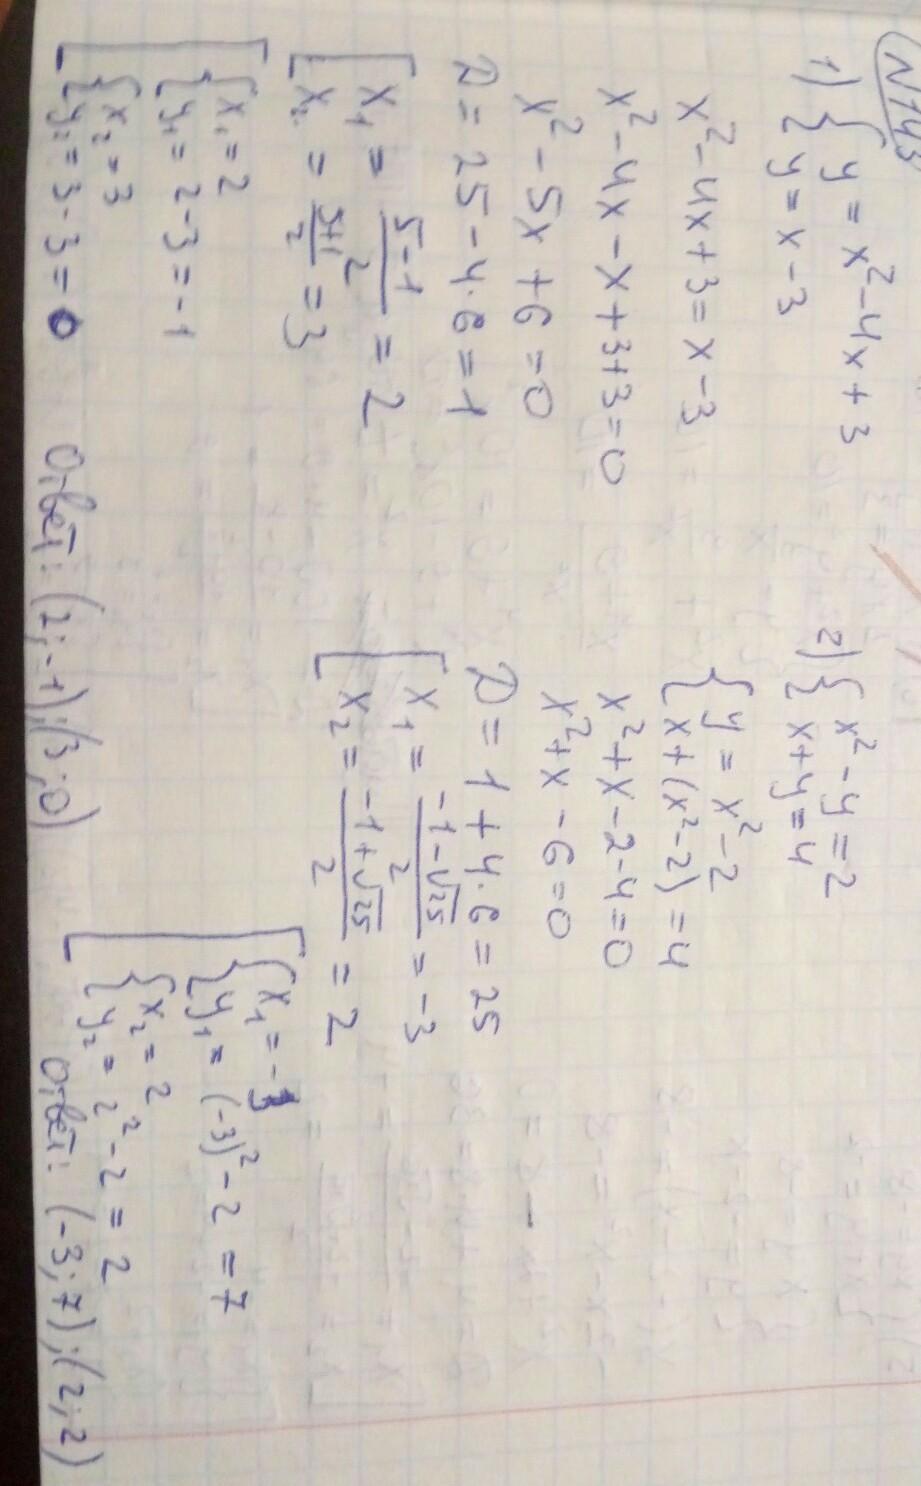 N743
1) { y = x² - 4x + 3
{ y = x - 3
x² - 4x + 3 = x - 3
x² - 4x - x + 3 + 3 = 0
x² - 5x + 6 = 0
D = 25 - 4·6 = 1
[ x₁ = (5-1)/2 = 2
[ x₂ = (5+1)/2 = 3
[ { x₁ = 2
{ y₁ = 2 - 3 = -1
{ x₂ = 3
{ y₂ = 3 - 3 = 0
Ответ: (2; -1); (3; 0)
2) { x² - y = 2
{ x + y = 4
{ y = x² - 2
{ x + (x² - 2) = 4
x² + x - 2 - 4 = 0
x² + x - 6 = 0
D = 1 + 4·6 = 25
[ x₁ = (-1 - √25)/2 = -3
[ x₂ = (-1 + √25)/2 = 2
[ { x₁ = -3
{ y₁ = (-3)² - 2 = 7
{ x₂ = 2
{ y₂ = 2² - 2 = 2
Ответ: (-3; 7); (2; 2)